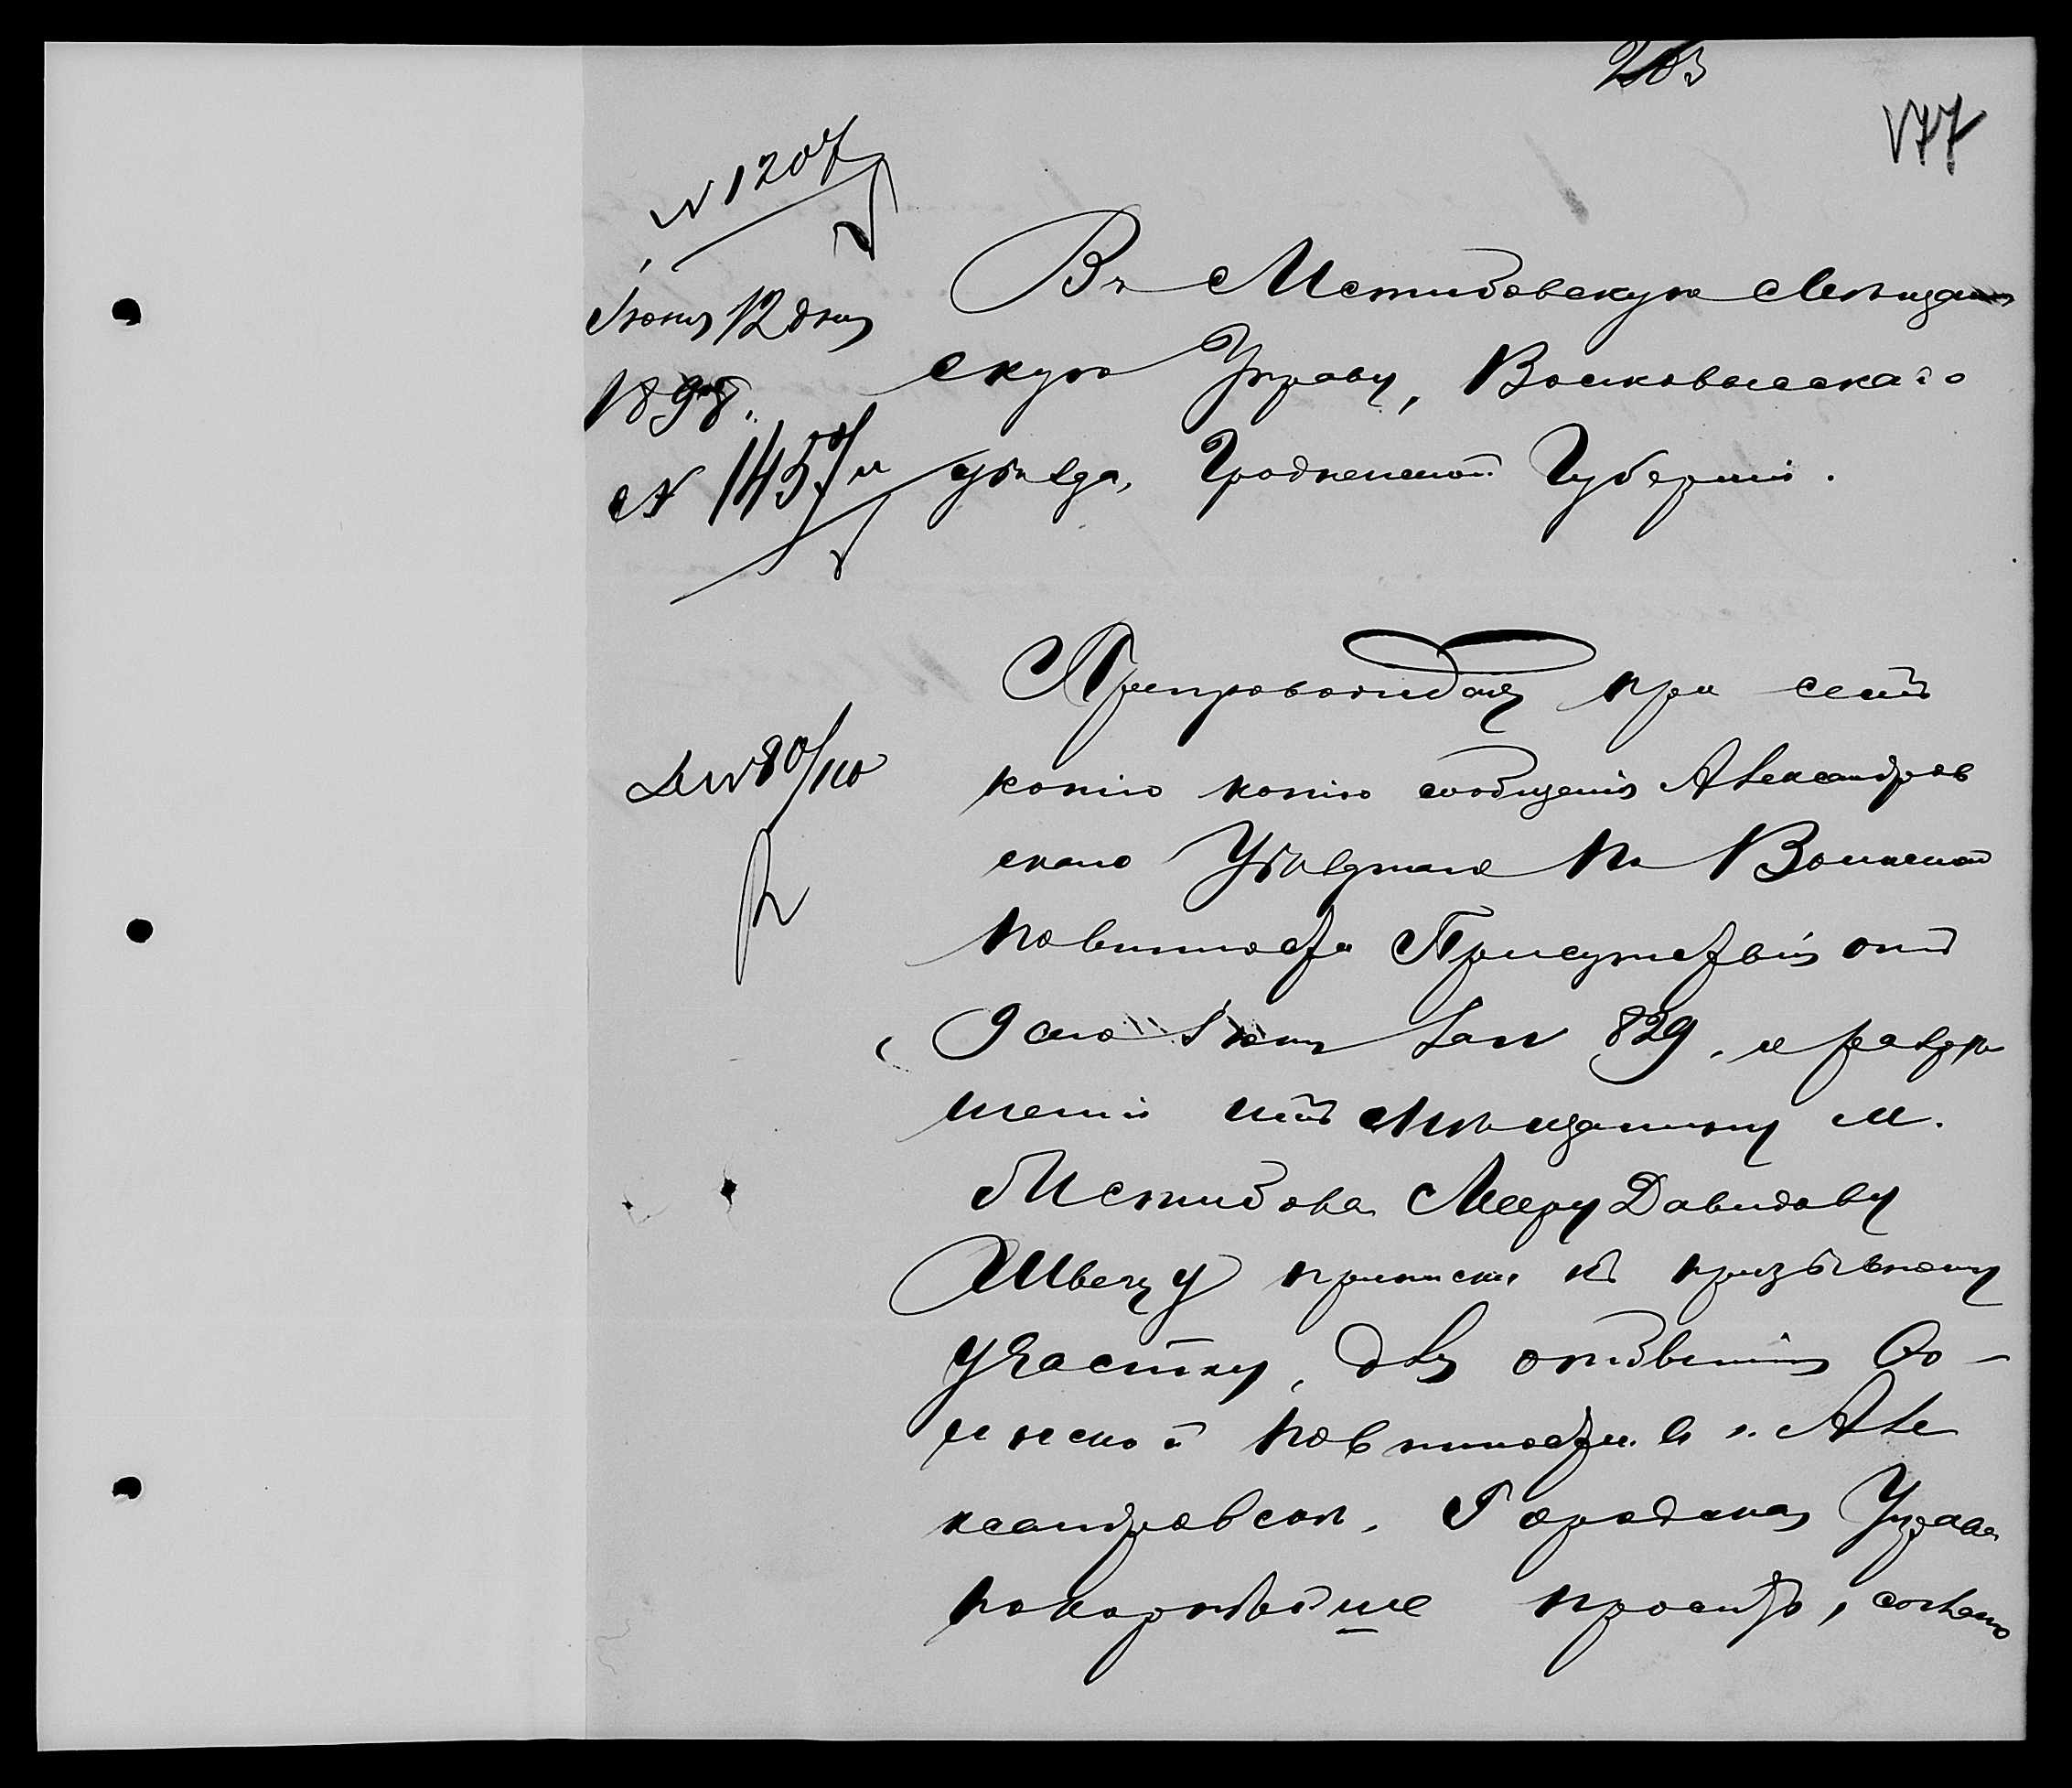 203
177
№ 1207
Іюня 12 дня
1898.
№ 1457
Въ Мстибовскую Мѣщан
скую Управу, Волковысскаго
уѣзда, Гродненской Губерніи.
Препровождая при семъ
копію копію сообщенія Александров
скаго Уѣзднаго по Воинской
повинности Присутствія отъ
9 сего Іюня за № 829, о разрѣ
шеніи имъ мѣщанину м.
Мстибова Мееру Давидову
Швецу приписки къ призывному
участку, для отбыванія Во-
инской повинности въ г. Але
ксандровскѣ, Городская Управа
покорнѣйше проситъ,